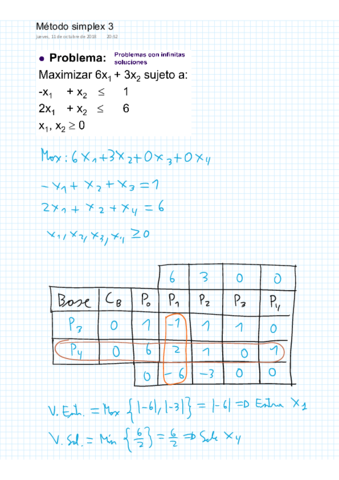 Método simplex 3
jueves, 11 de octubre de 2018 20:52
• Problema: Problemas con infinitas soluciones
Maximizar 6x₁ + 3x₂ sujeto a:
-x₁ + x₂ ≤ 1
2x₁ + x₂ ≤ 6
x₁, x₂ ≥ 0
Max: 6x₁+3x₂+0x₃+0x₄
-x₁+x₂+x₃=1
2x₁+x₂+x₄=6
x₁,x₂,x₃,x₄ ≥0
6 3 0 0
Base C_B P₀ P₁ P₂ P₃ P₄
P₃ 0 1 -1 1 1 0
P₄ 0 6 2 1 0 1
0 -6 -3 0 0
V. Ent. = Max {|-6|,|-3|} = |-6| => Entra x₁
V. Sal. = Min {6/2} = 6/2 => Sale x₄